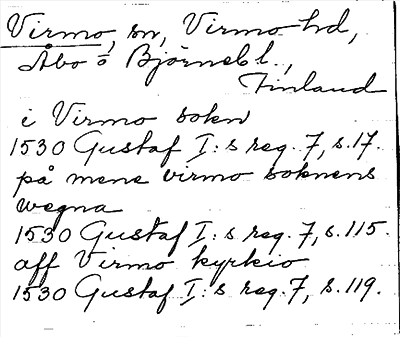 Virmo, sn, Virmo hd,
Åbo o Björnebl.,
Finland
i Virmo sokn
1530 Gustaf I:s reg. 7, s.17.
på mene virmo soknens
wegna
1530 Gustaf I:s reg. 7, s.115.
aff Virmo kyrkio
1530 Gustaf I:s reg. 7, s.119.